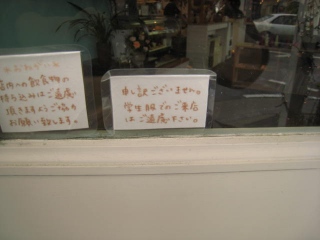 ※おねがい※
店内への飲食物の
持ち込みはご遠慮
頂きますようご協力
お願い致します。
申し訳ございません。
学生服でのご来店
はご遠慮下さい。